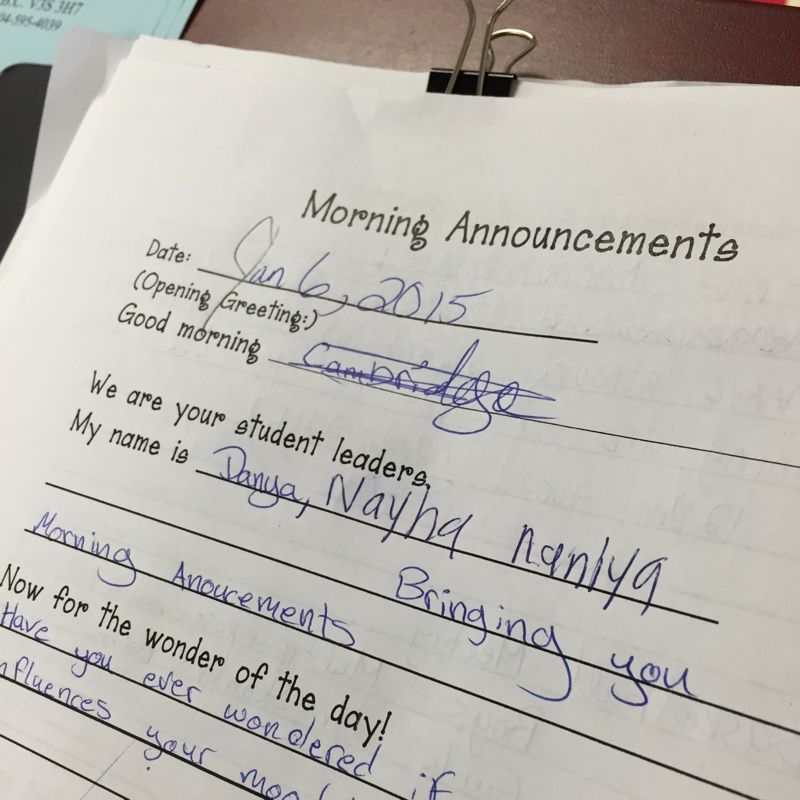 B.C. V3S 3H7
04-595-4039
Morning Announcements
Date: Jan 6, 2015
(Opening Greeting:)
Good morning Cambridge
We are your student leaders.
My name is Danya, Nayha nanlya
Bringing you
Morning Anouncements
Now for the wonder of the day!
Have you ever wondered if
nfluences your mood